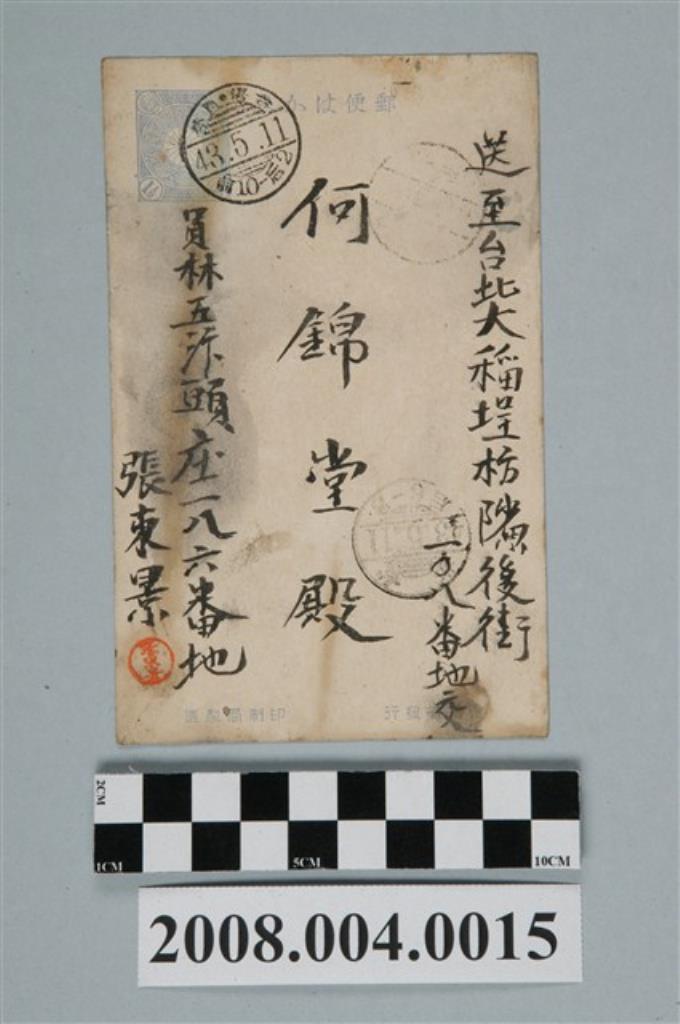 郵便はか
43.5.11
前10-后2
送至台北大稻埕枋隙後街
一八番地交
何錦堂殿
員林五汴頭庄一八六番地
張東景
印刷局製造
發行
2CM
1CM
5CM
10CM
2008.004.0015